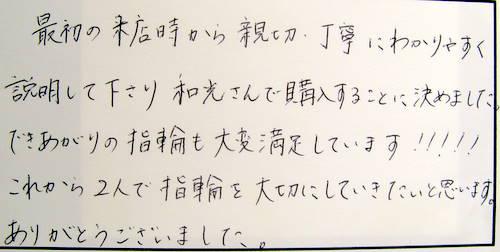 最初の来店時から親切・丁寧にわかりやすく
説明して下さり 和光さんで購入することに決めました。
できあがりの指輪も大変満足しています!!!!!
これから2人で指輪を大切にしていきたいと思います。
ありがとうございました。